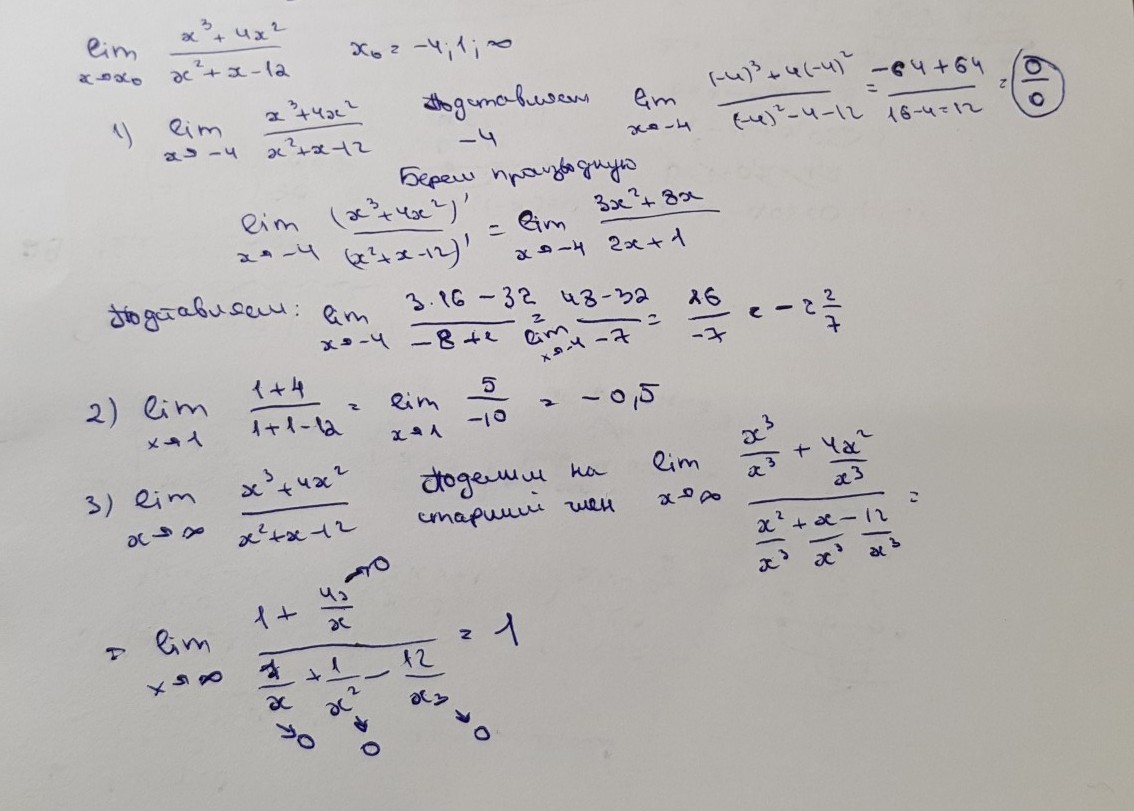 lim x→x₀ (x³ + 4x²)/(x² + x - 12) x₀ = -4; 1; ∞
1) lim x→-4 (x³+4x²)/(x²+x-12) Подставляем -4 lim x→-4 ((-4)³ + 4(-4)²)/((-4)² - 4 - 12) = (-64 + 64)/(16-4=12) = 0/0
Берем производную
lim x→-4 (x³+4x²)'/(x²+x-12)' = lim x→-4 (3x² + 8x)/(2x + 1)
Подставляем: lim x→-4 (3·16 - 32)/(-8+1) = lim x→-4 (48-32)/(-7) = 16/(-7) = -2 2/7
2) lim x→1 (1+4)/(1+1-12) = lim x→1 5/(-10) = -0,5
3) lim x→∞ (x³+4x²)/(x²+x-12) Поделим на старший член lim x→∞ (x³/x³ + 4x²/x³)/(x²/x³ + x/x³ - 12/x³) =
= lim x→∞ (1 + 4/x →0)/(1/x →0 + 1/x² →0 - 12/x³ →0) = 1